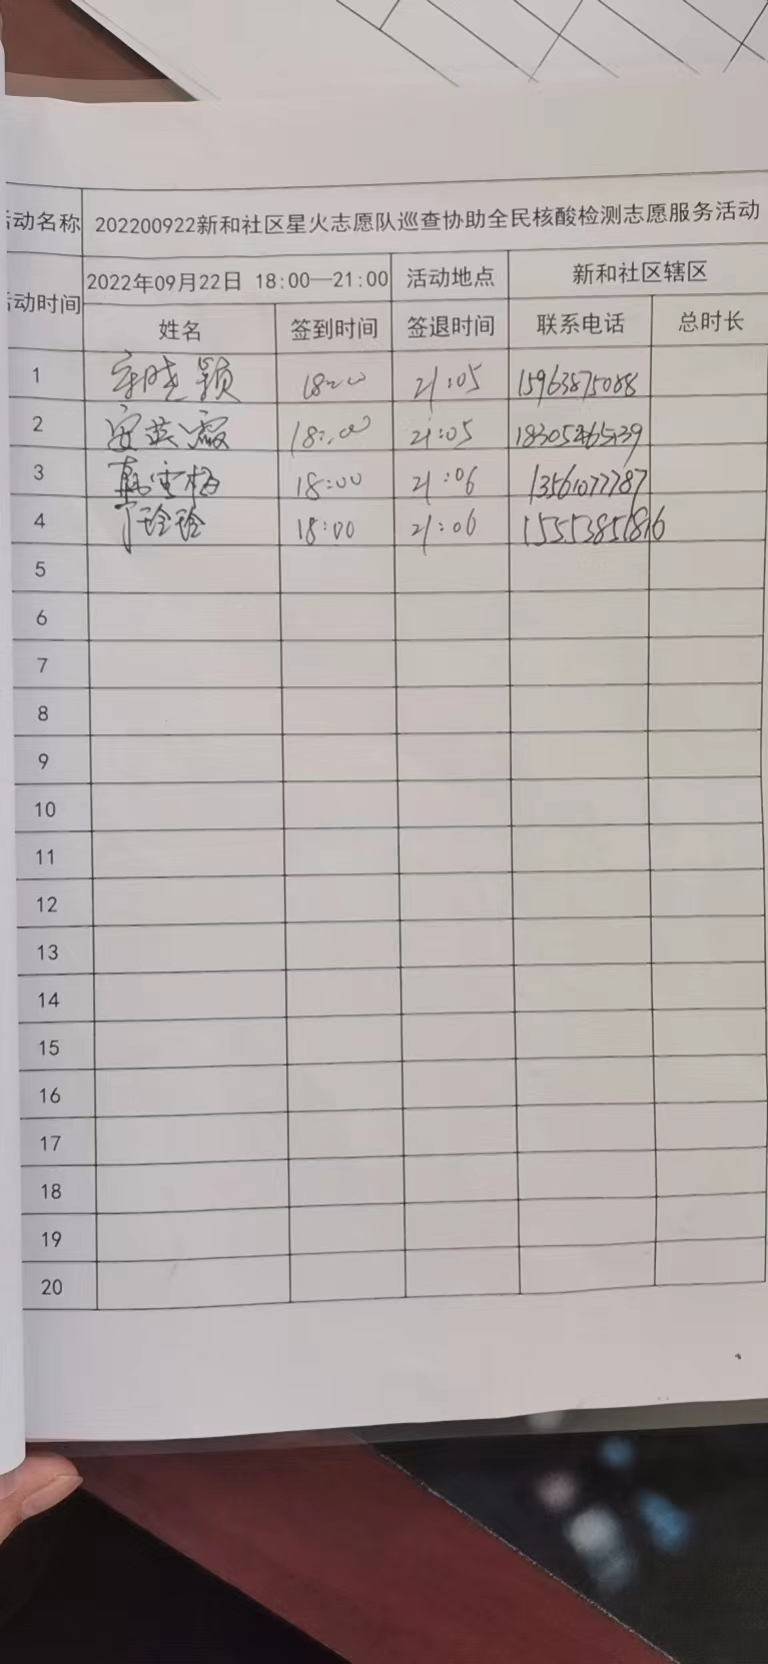 活动名称 202200922新和社区星火志愿队巡查协助全民核酸检测志愿服务活动
活动时间 2022年09月22日 18:00—21:00 活动地点 新和社区辖区
姓名 签到时间 签退时间 联系电话 总时长
1 颖 18:00 21:05 15963875088
2 安英霞 18:00 21:05
3 韩雪梅 18:00 21:06 13561077787
4 丁玲玲 18:00 21:06
5
6
7
8
9
10
11
12
13
14
15
16
17
18
19
20